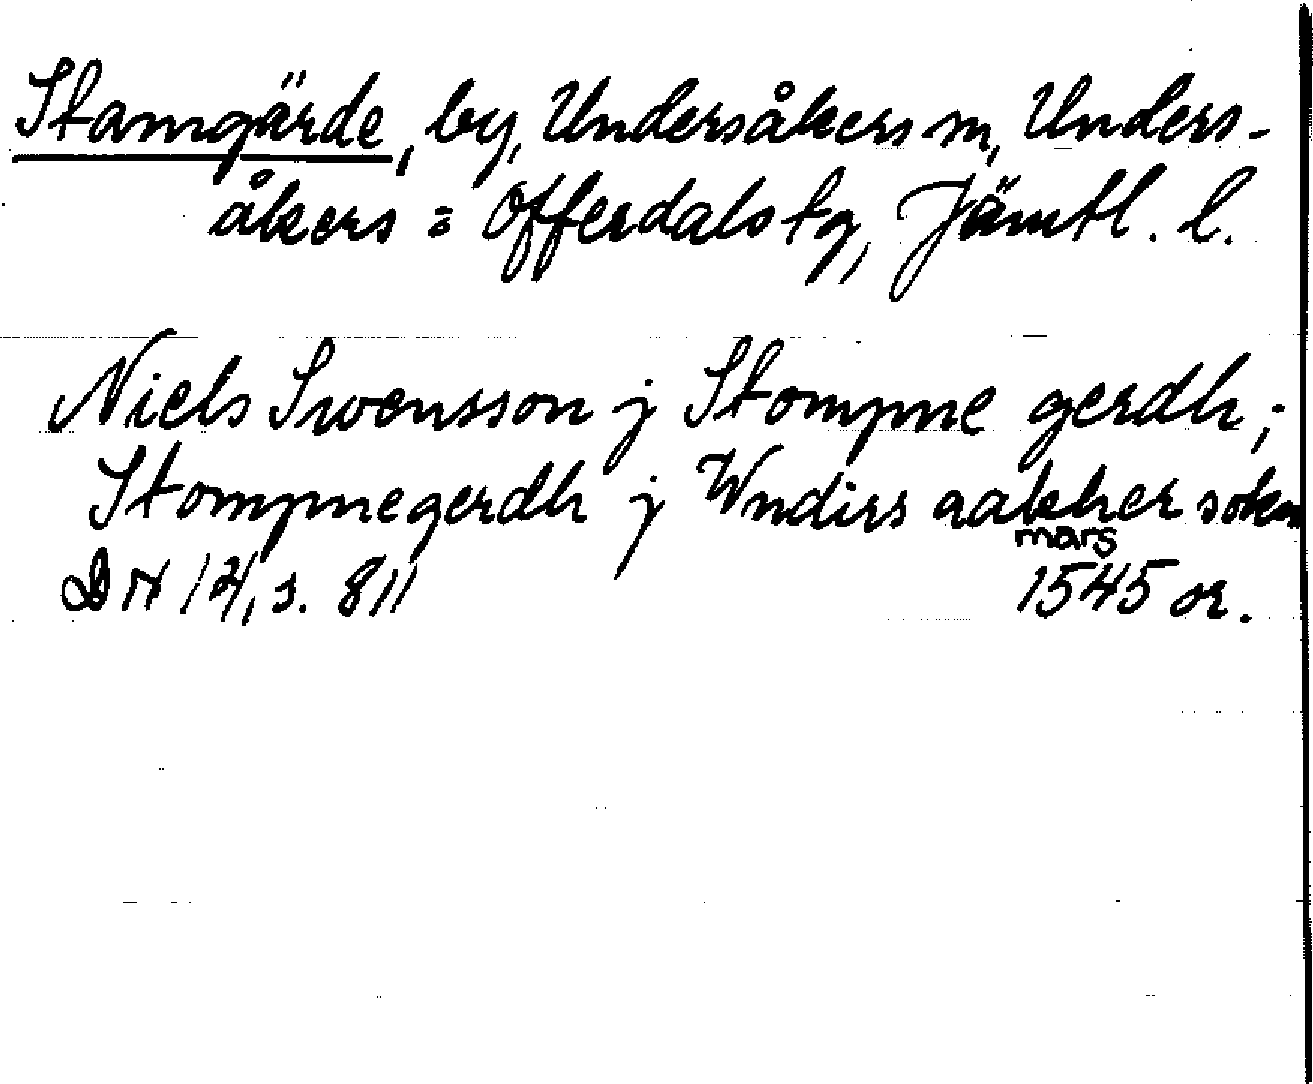 Stamgärde, by, Undersåkers sn, Unders-
åkers = Offerdals tg, Jämtl. l.
Niels Swensson j Stompne gerdh;
Stompnegerdh j Wndirs aakher sokn
mars
DN 14, s. 811 1545 or.